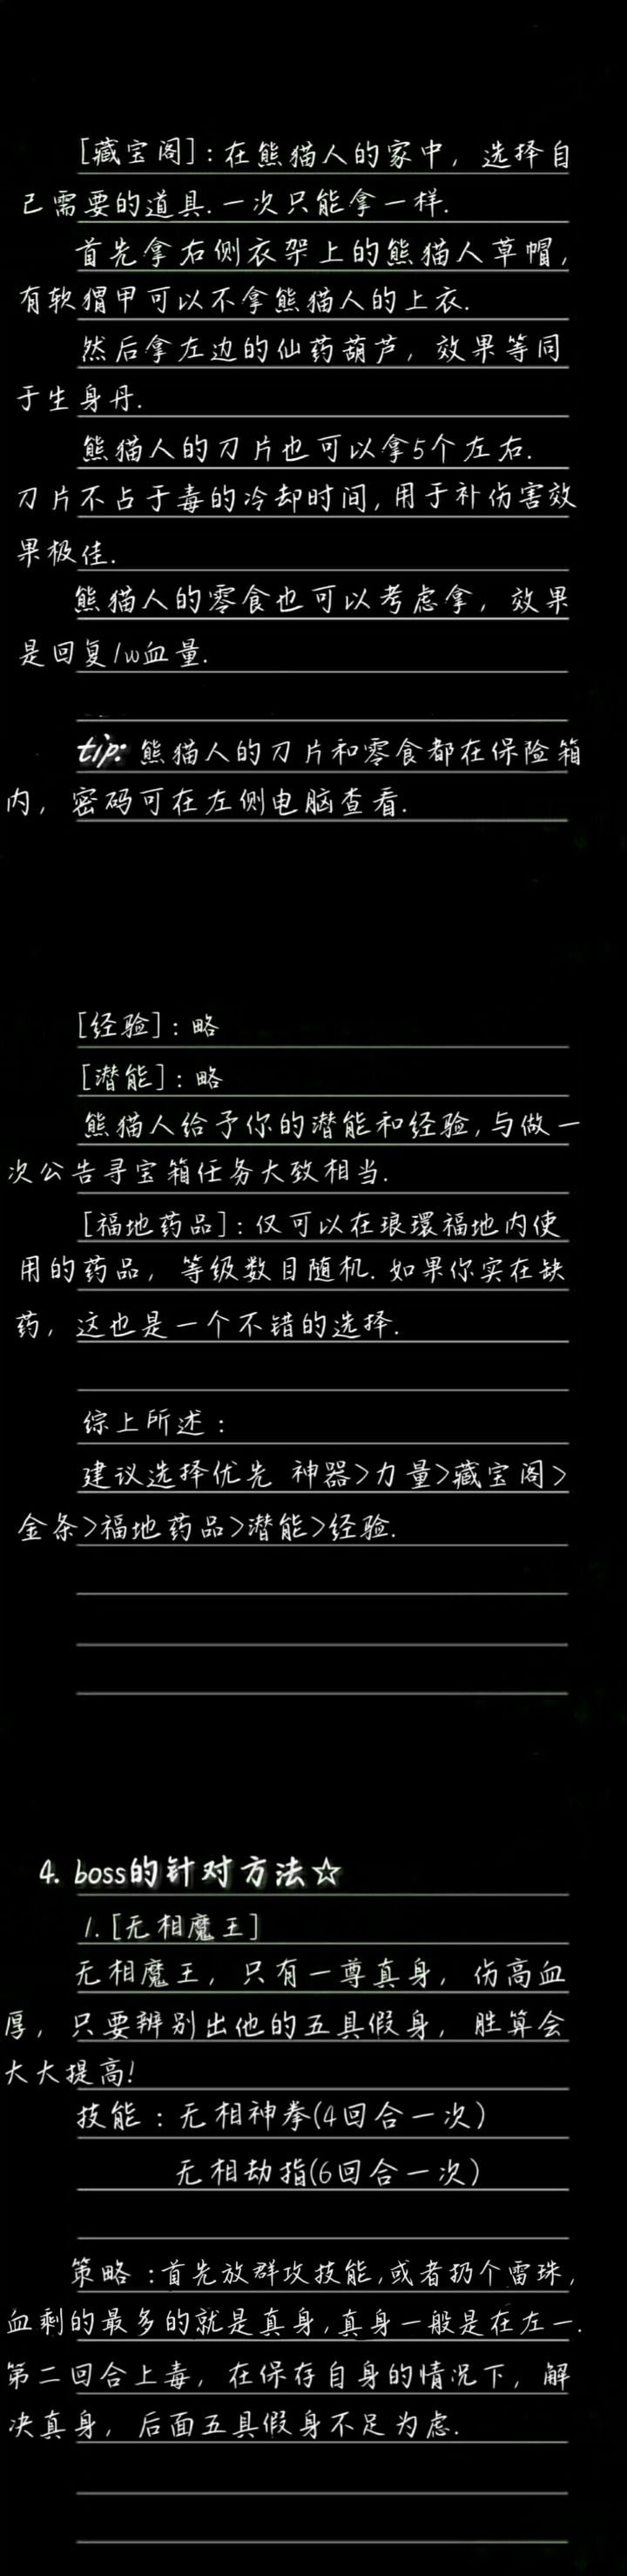 [藏宝阁]:在熊猫人的家中，选择自
己需要的道具.一次只能拿一样.
首先拿右侧衣架上的熊猫人草帽,
有软猬甲可以不拿熊猫人的上衣.
然后拿左边的仙药葫芦，效果等同
于生身丹.
熊猫人的刀片也可以拿5个左右.
刀片不占于毒的冷却时间,用于补伤害效
果极佳.
熊猫人的零食也可以考虑拿，效果
是回复1w血量.
tip:熊猫人的刀片和零食都在保险箱
内，密码可在左侧电脑查看.
[经验]:略
[潜能]:略
熊猫人给予你的潜能和经验,与做一
次公告寻宝箱任务大致相当.
[福地药品]:仅可以在琅環福地内使
用的药品，等级数目随机.如果你实在缺
药，这也是一个不错的选择.
综上所述:
建议选择优先 神器>力量>藏宝阁>
金条>福地药品>潜能>经验.
4. boss的针对方法☆
1.[无相魔王]
无相魔王，只有一尊真身，伤高血
厚，只要辨别出他的五具假身，胜算会
大大提高!
技能:无相神拳(4回合一次)
无相劫指(6回合一次)
策略:首先放群攻技能,或者扔个雷珠,
血剩的最多的就是真身,真身一般是在左一.
第二回合上毒，在保存自身的情况下，解
决真身，后面五具假身不足为虑.